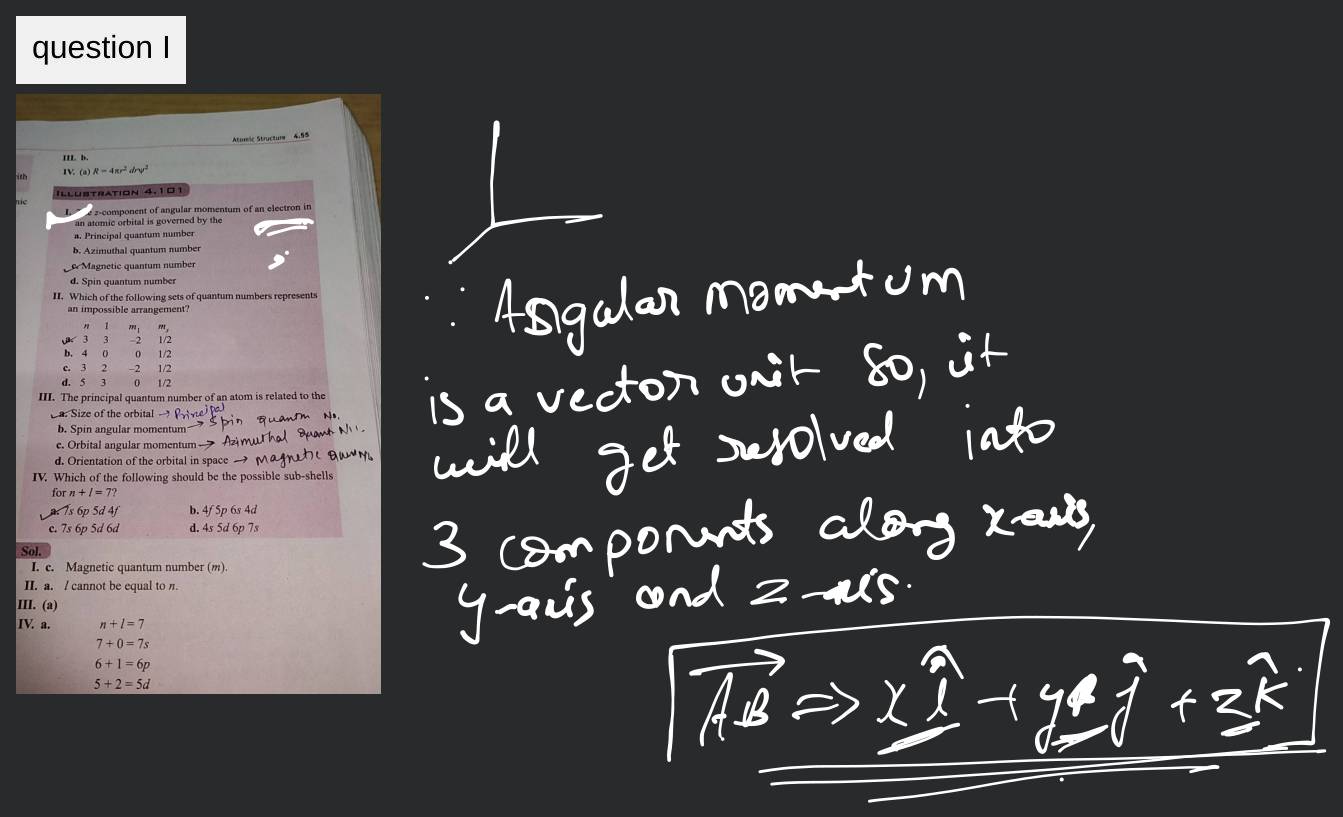 question I
Atomic Structure 4.55
III. b.
IV. (a) R = 4πr² drψ²
ith
nic
ILLUSTRATION 4.101
I. z-component of angular momentum of an electron in
an atomic orbital is governed by the
a. Principal quantum number
b. Azimuthal quantum number
c. Magnetic quantum number
d. Spin quantum number
II. Which of the following sets of quantum numbers represents
an impossible arrangement?
n l m₁ mₛ
a. 3 3 −2 1/2
b. 4 0 0 1/2
c. 3 2 −2 1/2
d. 5 3 0 1/2
III. The principal quantum number of an atom is related to the
a. Size of the orbital → Principal
b. Spin angular momentum → Spin quantum No.
c. Orbital angular momentum → Azimuthal Quant No.
d. Orientation of the orbital in space → Magnetic
IV. Which of the following should be the possible sub-shells
for n + l = 7?
a. 7s 6p 5d 4f b. 4f 5p 6s 4d
c. 7s 6p 5d 6d d. 4s 5d 6p 7s
Sol.
I. c. Magnetic quantum number (m).
II. a. l cannot be equal to n.
III. (a)
IV. a. n + l = 7
7 + 0 = 7s
6 + 1 = 6p
5 + 2 = 5d
∵ Angular momentum
is a vector unit so, it
will get resolved into
3 components along x-axis,
y-axis and z-axis.
AB ⇒ xî + yĵ + zk̂